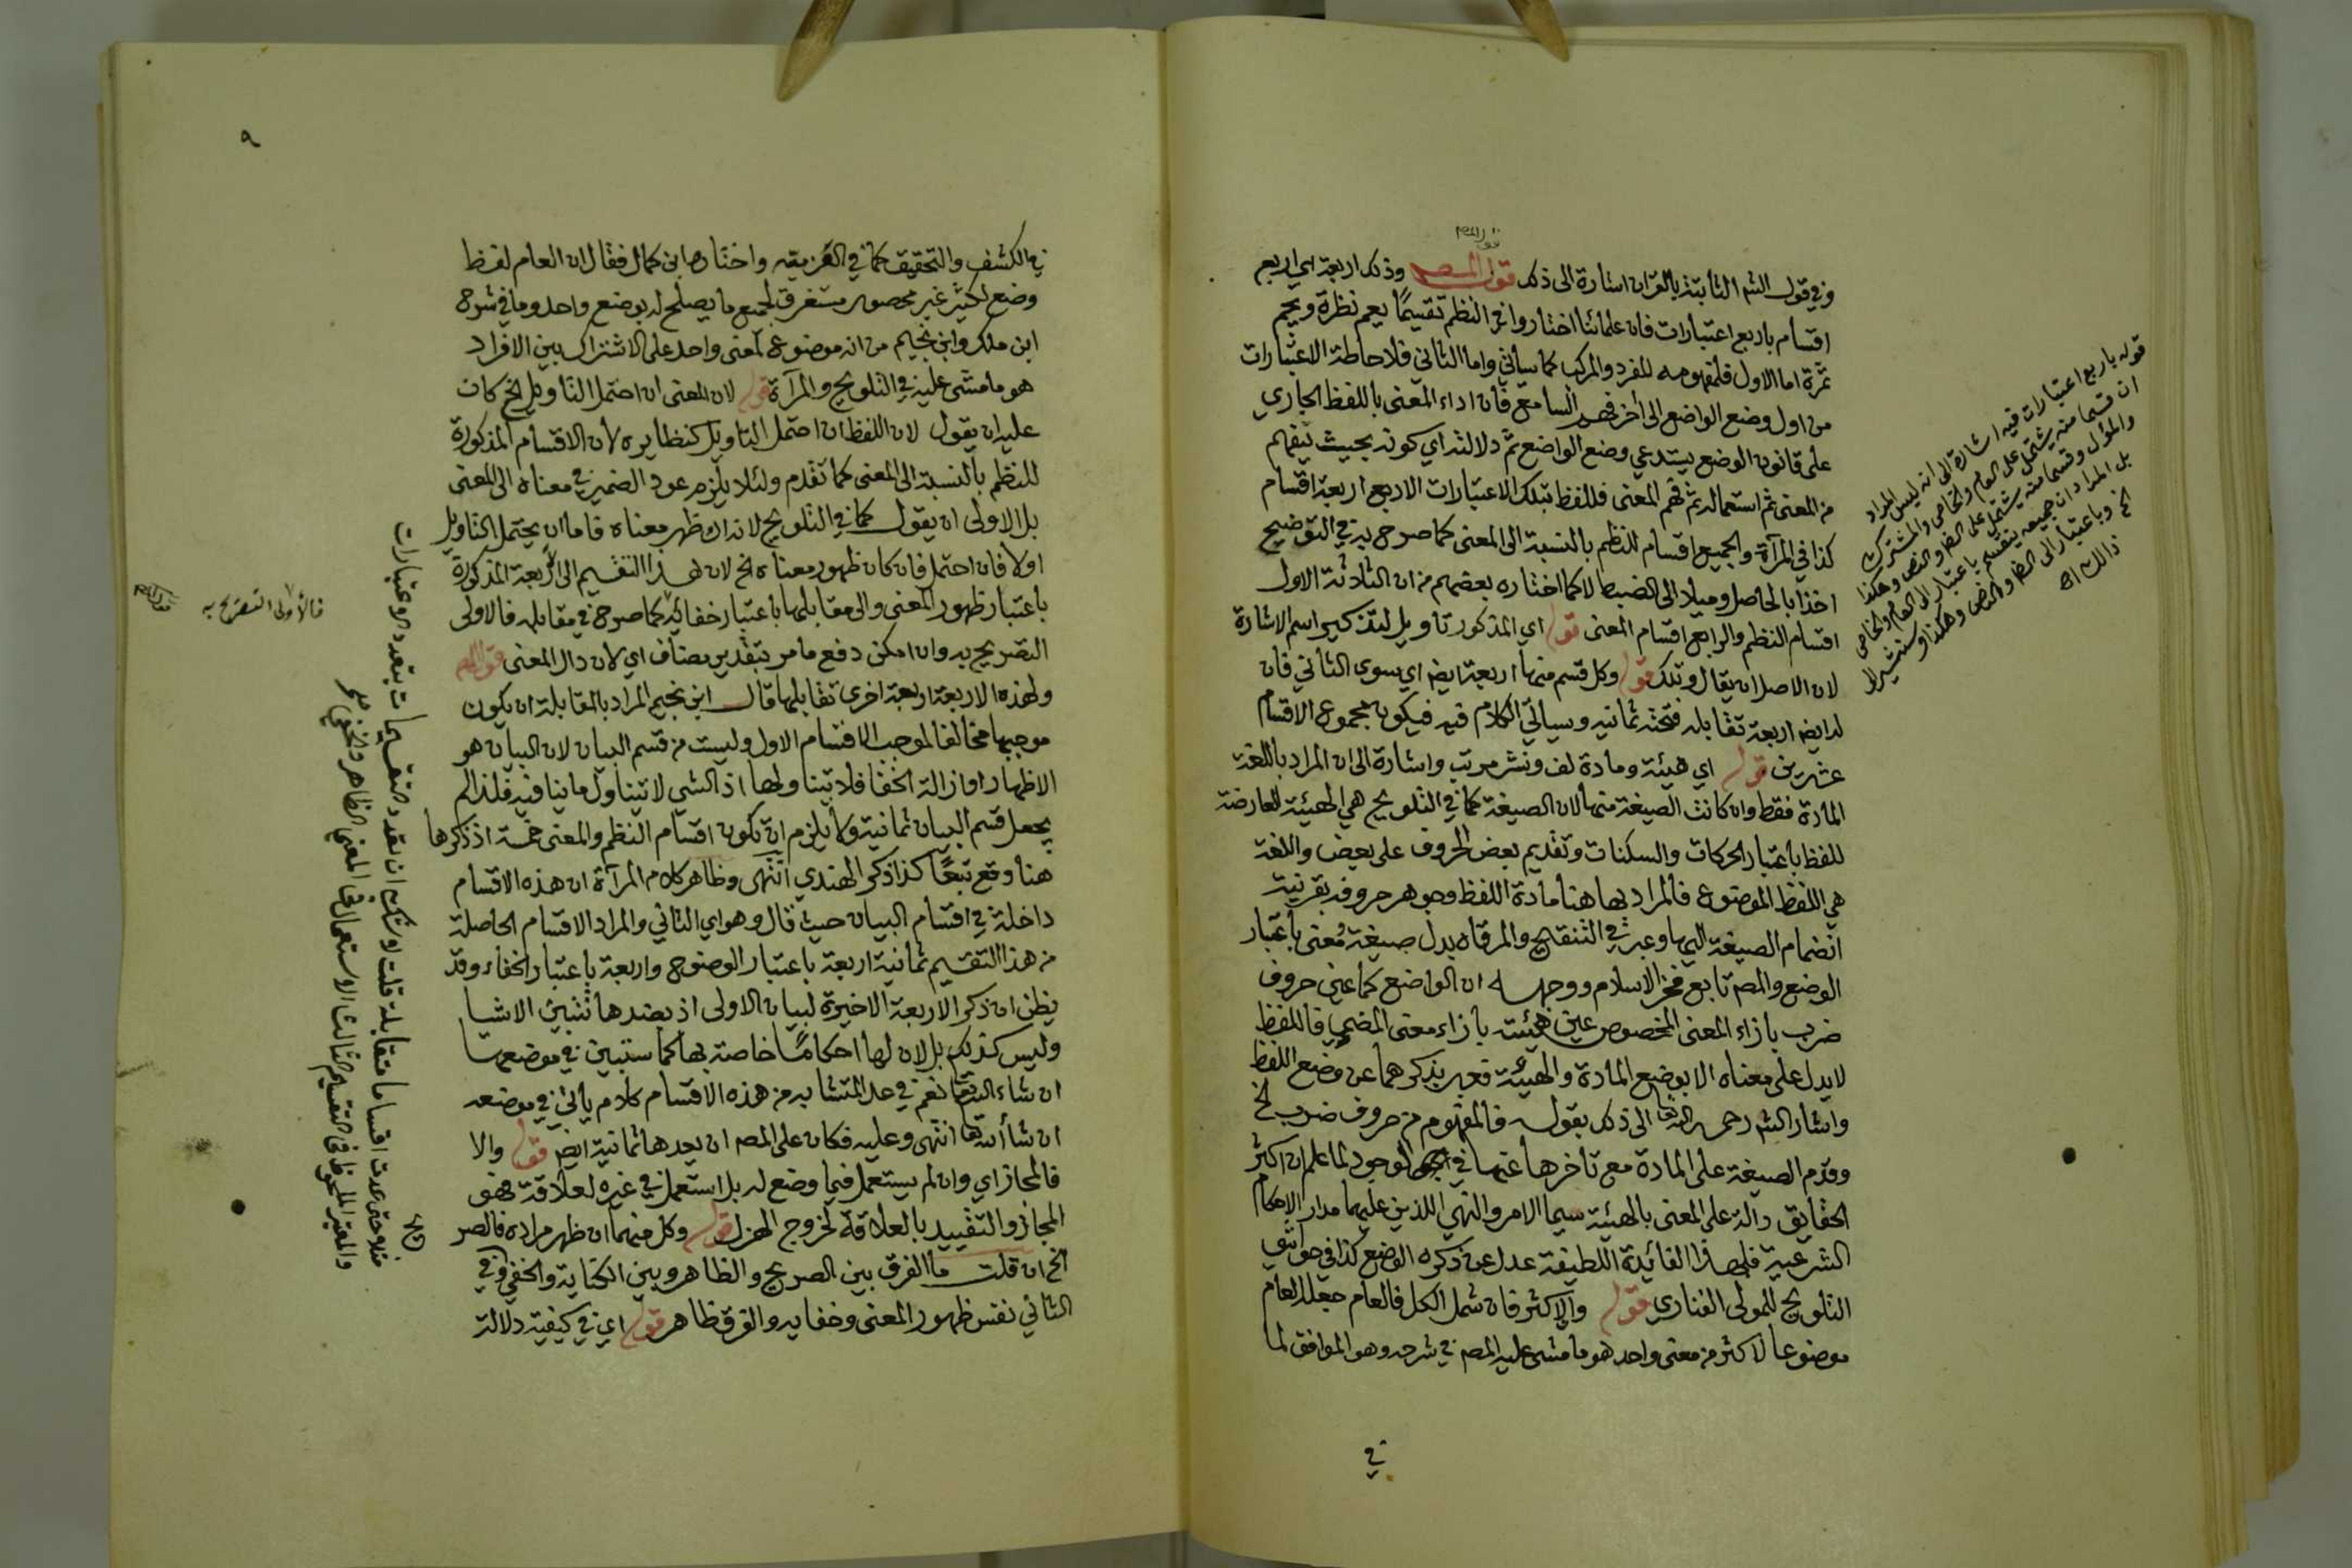 وفي قول الشم الثابتة بالقران اشارة الى ذلك قول المصـ وذلك اربعة اي اربع
اقسام باربع اعتبارات فان علمائنا اختاروا في النظم تقسيمًا يعم نظرة ويجم
ثمرة اما الاول فلمفهومه للمفرد والمركب كما سيأتي واما الثاني فلاحاطة الاعتبارات
من اول وضع الواضع الى اخر فهم السامع فان اداء المعنى باللفظ الجاري
على قانون الوضع يستدعي وضع الواضع ثم دلالته اي كونه بحيث يفهم
منه المعنى ثم استعماله ثم فهم المعنى فللفظ بتلك الاعتبارات الاربع اربعة اقسام
كذا في المرآة والجميع اقسام للنظم بالنسبة الى المعنى كما صرح به في التوضيح
اخذا بالحاصل وميلا الى الضبط لا كما اختاره بعضهم من ان الثلاثة الاول
اقسام النظم والرابع اقسام المعنى قوله اي المذكور تأويل لتذكير اسم الاشارة
لان الاصل ان يقال وتلك قوله وكل قسم منها اربعة ايضا اي سوى الثاني فان
له ايضا اربعة تقابله فتحته ثمانية وسيأتي الكلام فيه فيكون مجموع الاقسام
عشرين قوله اي هيئة ومادة لف ونشر مرتب واشارة الى ان المراد باللغة
المادة فقط وان كانت الصيغة منها لان الصيغة كما في التلويح هي الهيئة العارضة
للفظ باعتبار الحركات والسكنات وتقديم بعض الحروف على بعض واللغة
هي اللفظ الموضوع فالمراد بها هنا مادة اللفظ وجوهر حروفه بقرينة
انضمام الصيغة اليها وعبر في التنقيح والمرقاه بدل صيغة ومعنى باعتبار
الوضع والمصـ تابع فخر الاسلام ووجهه ان الواضع كما عين حروف
ضرب بازاء المعنى المخصوص عين هيئته بازاء معنى المضي فاللفظ
لا يدل على معناه الا بوضع المادة والهيئة فعبر بذكرهما عن وضع اللفظ
واشار الشم رحمه الله تعالى الى ذلك بقوله فالمفهوم من حروف ضرب الخ
وقدم الصيغة على المادة مع تأخرها عنها في الوجود لما علم ان اكثر
الحقايق دالة على المعنى بالهيئة سيما الامر والنهي اللذين عليهما مدار الاحكام
الشرعية فلهذا الفائدة اللطيفة عدل عن ذكره الوضع كذا في حواشي
التلويح للمولى الفناري قوله والاكثر فان شمل الكل فالعام جعل العام
موضوعا لاكثر من معنى واحد هو ما مشى عليه المصـ في شرحه وهو الموافق لما
في
قوله باربع اعتبارات فيه اشارة الى انه ليس المراد
ان قسما منه يشتمل على العام والخاص والمشترك
والمؤل وقسما منه يشتمل على الظ والنص وهكذا
بل المراد ان جميعه ينقسم باعتبار الى العام والخاص
الخ وباعتبار الى الظ والنص وهكذا وستشير الى
ذلك اه
٩
في الكشف والتحقيق كما في العزميه واختار ابن كمال فقال ان العام لفظ
وضع لكثير غير محصور مستغرق لجميع ما يصلح له بوضع واحد وما في شرح
ابن ملك وابن نجيم من انه موضوع لمعنى واحد على الاشتراك بين الافراد
هو ما مشى عليه في التلويح والمرآة قوله لان المعنى ان احتمل التأويل الخ كان
عليه ان يقول لان اللفظ ان احتمل التاويل كنظايره لان الاقسام المذكورة
للنظم بالنسبة الى المعنى كما تقدم ولئلا يلزم عود الضمير في معناه الى المعنى
بل الاولى ان يقول كما في التلويح لانه ان ظهر معناه فاما ان يحتمل التاويل
اولا فان احتمل فان كان ظهور معناه الخ لان هذا التقسيم الى الاربعة المذكورة
باعتبار ظهور المعنى والى مقابلها باعتبار خفائه كما صرح في مقابله فالاولى
التصريح به وان امكن دفع ما مر بتقدير مضاف اي لان دال المعنى قوله
ولهذه الاربعة اربعة اخرى تقابلها قال ابن نجيم المراد بالمقابلة ان يكون
موجبها مخالفا لموجب الاقسام الاول وليست من قسم البيان لان البيان هو
الاظهار او ازالة الخفا فلا يتناولها اذ الشي لا يتناول ما ينافيه فلذا لم
يجعل قسم البيان ثمانية ولا يلزم ان تكون اقسام النظم والمعنى خمسة اذ ذكرها
هنا وقع تبعًا كذا ذكر الهندي انتهى وظاهر كلام المرآة ان هذه الاقسام
داخلة في اقسام البيان حيث قال وهو اي الثاني والمراد الاقسام الحاصلة
من هذا التقسيم ثمانية اربعة باعتبار الوضوح واربعة باعتبار الخفاء وقد
يظن ان ذكر الاربعة الاخيرة لبيان الاولى اذ بضدها تتبين الاشيا
وليس كذلك بل لان لها احكامًا خاصة بها كما ستبين في موضعها
ان شاء الله تعالى نعم في عد المتشابه من هذه الاقسام كلام يأتي في موضعه
ان شاء الله تعالى انتهى وعليه فكان على المصـ ان يعدها ثمانية ايضا قوله والا
فالمجاز اي وان لم يستعمل فيما وضع له بل استعمل في غيره لعلاقة فهو
المجاز والتقييد بالعلاقة لخروج الهزل قوله وكل منهما ان ظهر مراده فالصر
الخ ان قلت ما الفرق بين الصريح والظاهر وبين الكناية والخفي في
الثاني نفس ظهور المعنى وخفايه والفرق ظاهر قوله اي في كيفية دلالة
فالاولى التصريح به